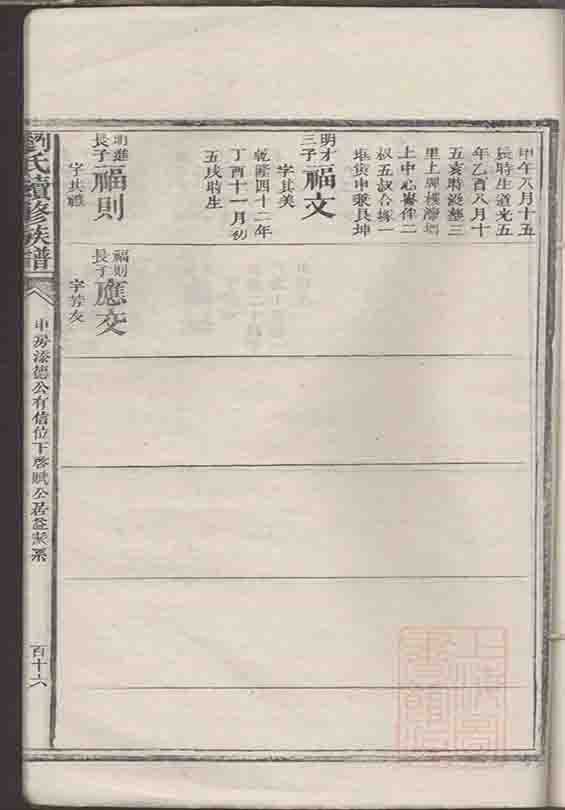 甲午六月十五
辰時生道光五
年乙酉八月十
五亥時沒塟三
里上
上中心
叔五叔合塚一
堆貴申兼艮坤
明才三子福文
字其美
乾隆四十二年
丁酉十一月初
五戌時生
明進長子福則
字其禮
福則長子應文
字芳友
劉氏續修族譜
申房添德公有信位下啓賦公居益
百十六